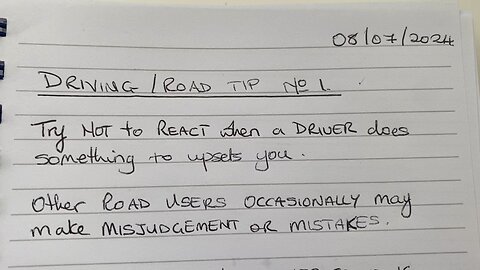 08/07/2024
DRIVING/ROAD TIP No 1.
Try NOT to REACT when a DRIVER does
something to upsets you.
Other ROAD USERS OCCASIONALLY may
make MISJUDGEMENT OR MISTAKES.